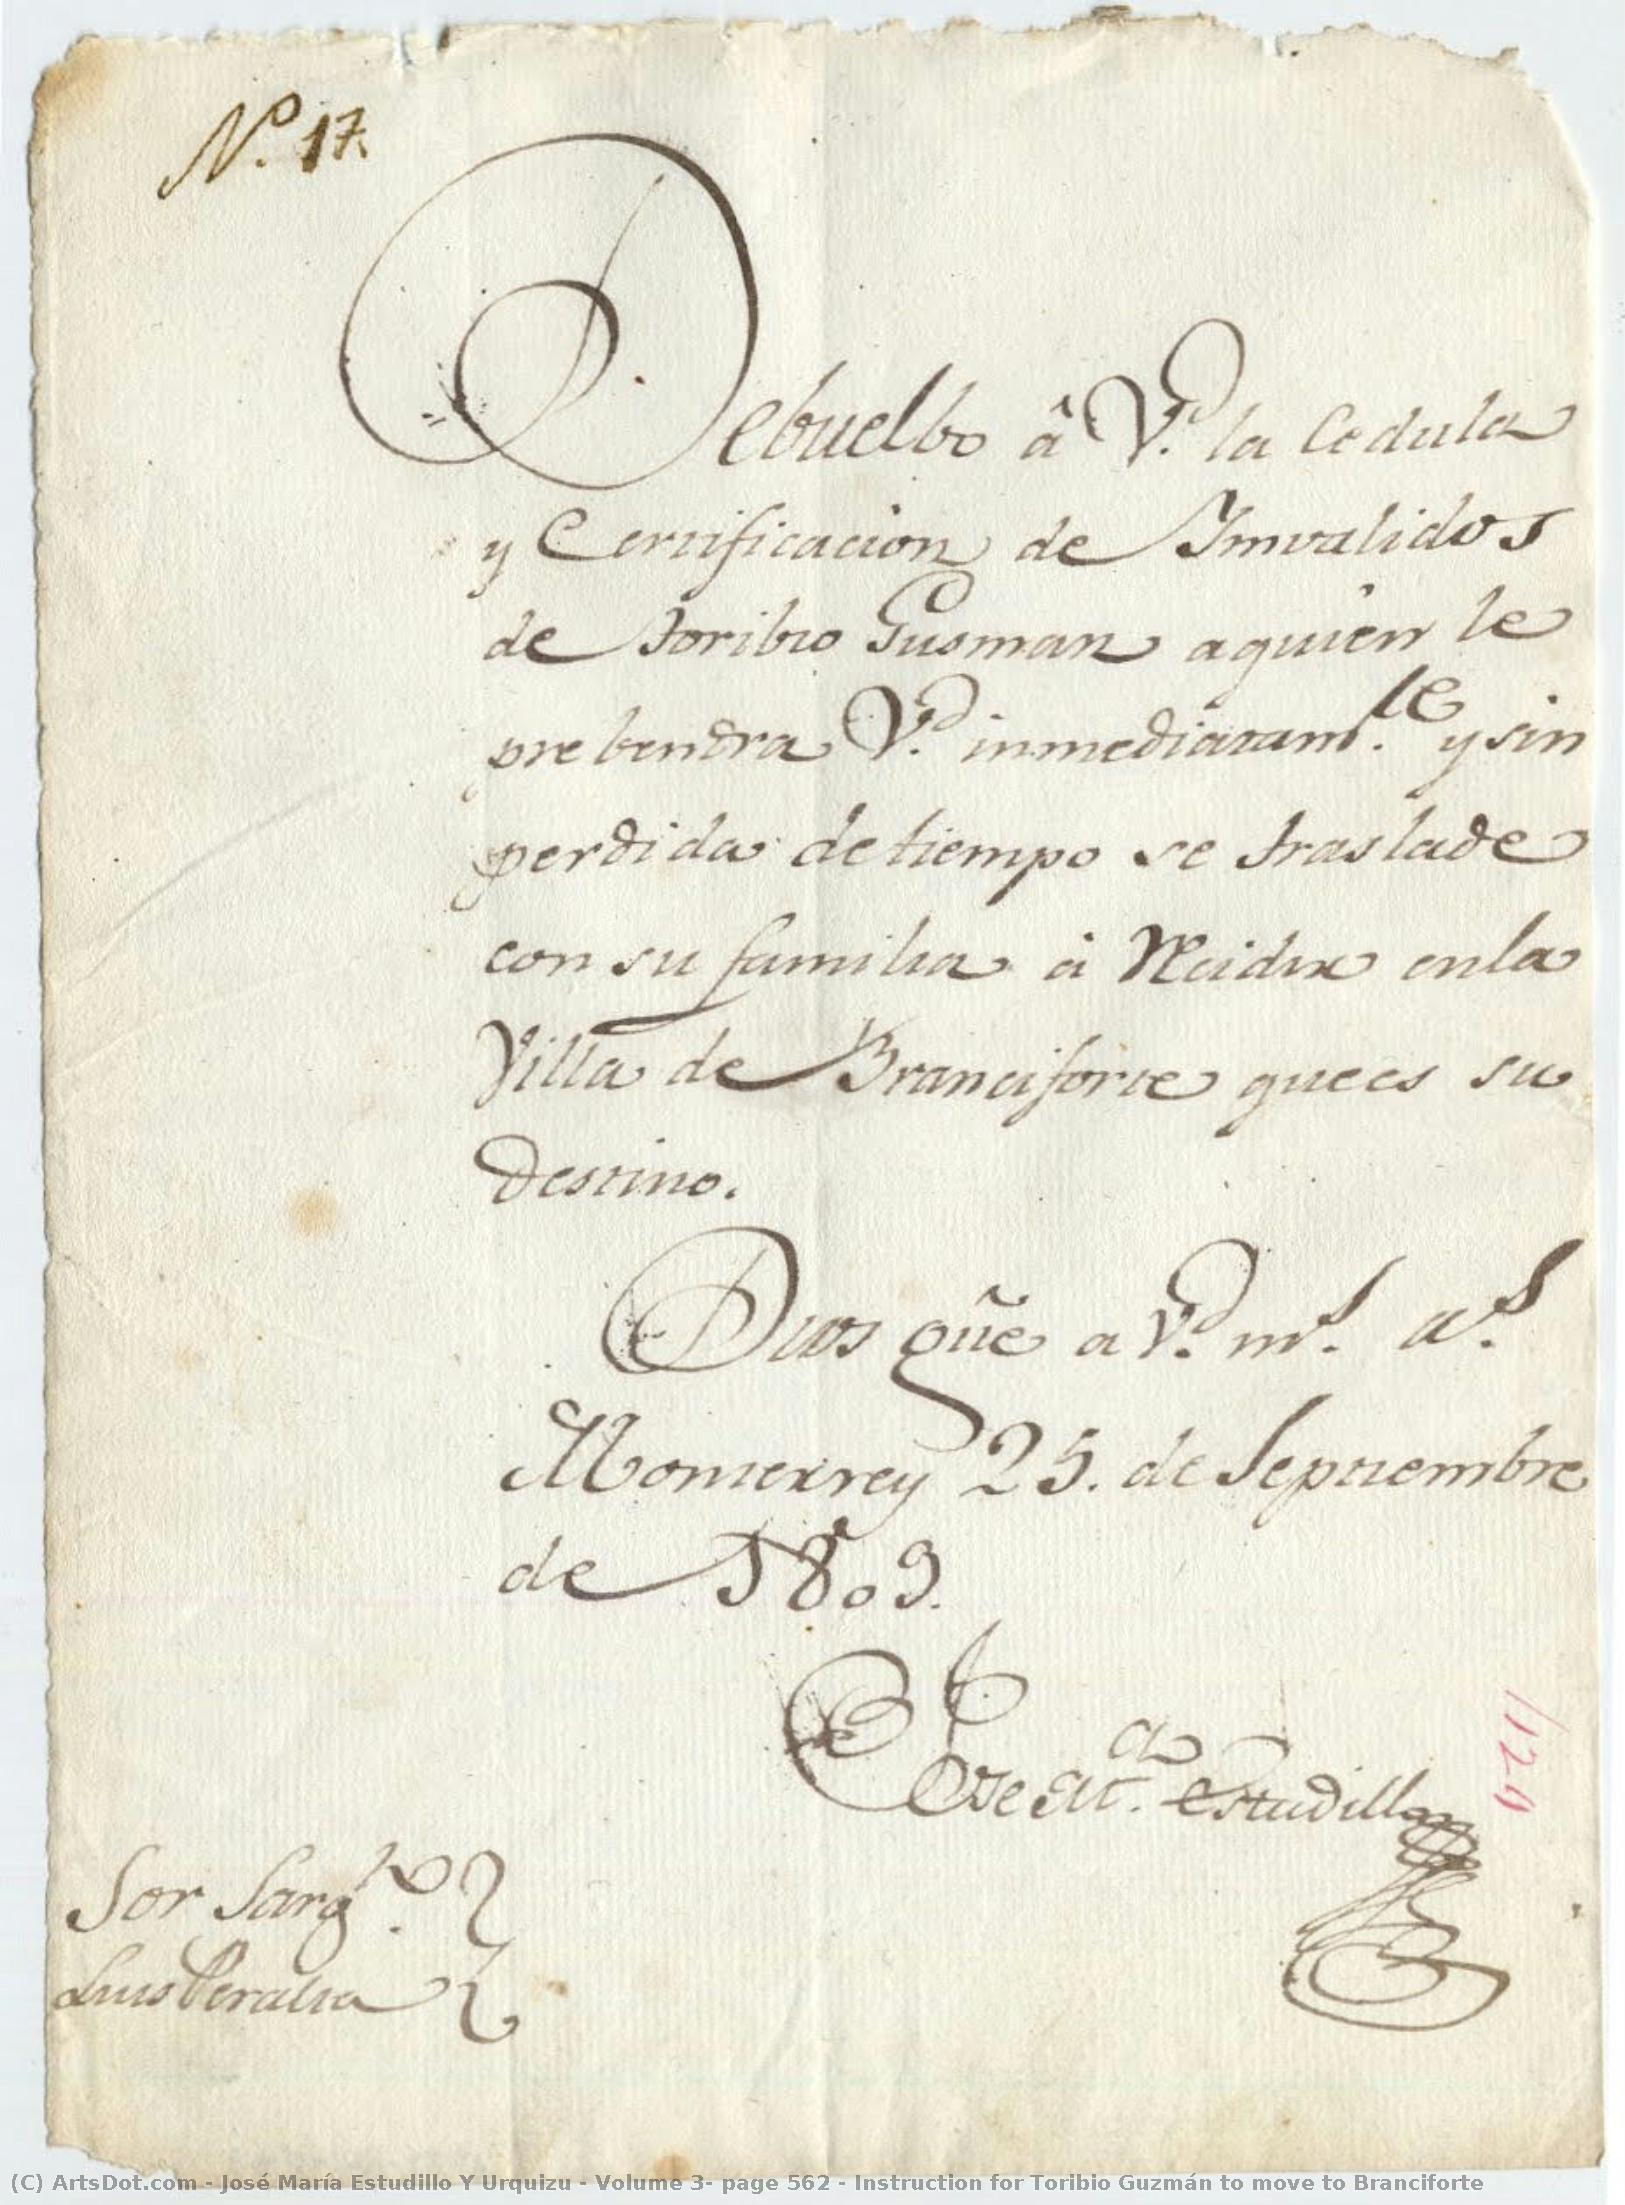 Nº. 17.
Debuelbo â V.d la Cedula
y Certificacion de Imvalidos
de Toribio Gusman aquien le
prebendra V.d inmediatam.te y sin
perdida de tiempo se traslade
con su familia à Recidir en la
Villa de Branciforte que es su
destino.
Dios gũe a V.d m.s a.s
Monterrey 25. de Septiembre
de 1809.
Jose M.a Estudillo
Sor Sarg.to
Luis Peralta
(C) ArtsDot.com - José María Estudillo Y Urquizu - Volume 3- page 562 - Instruction for Toribio Guzmán to move to Branciforte